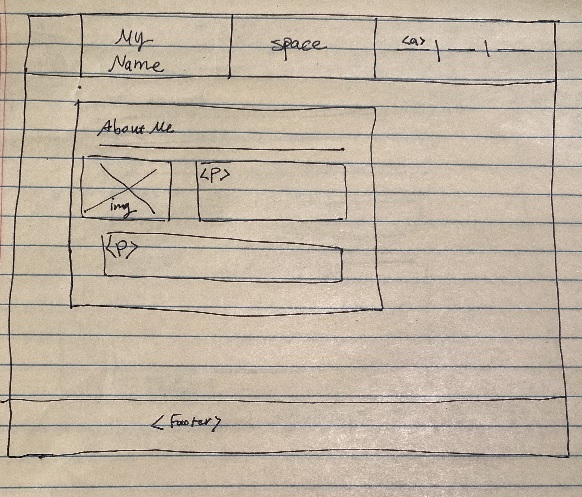 My
Name
space
<a>
About Me
img
<P>
<P>
<Footer>